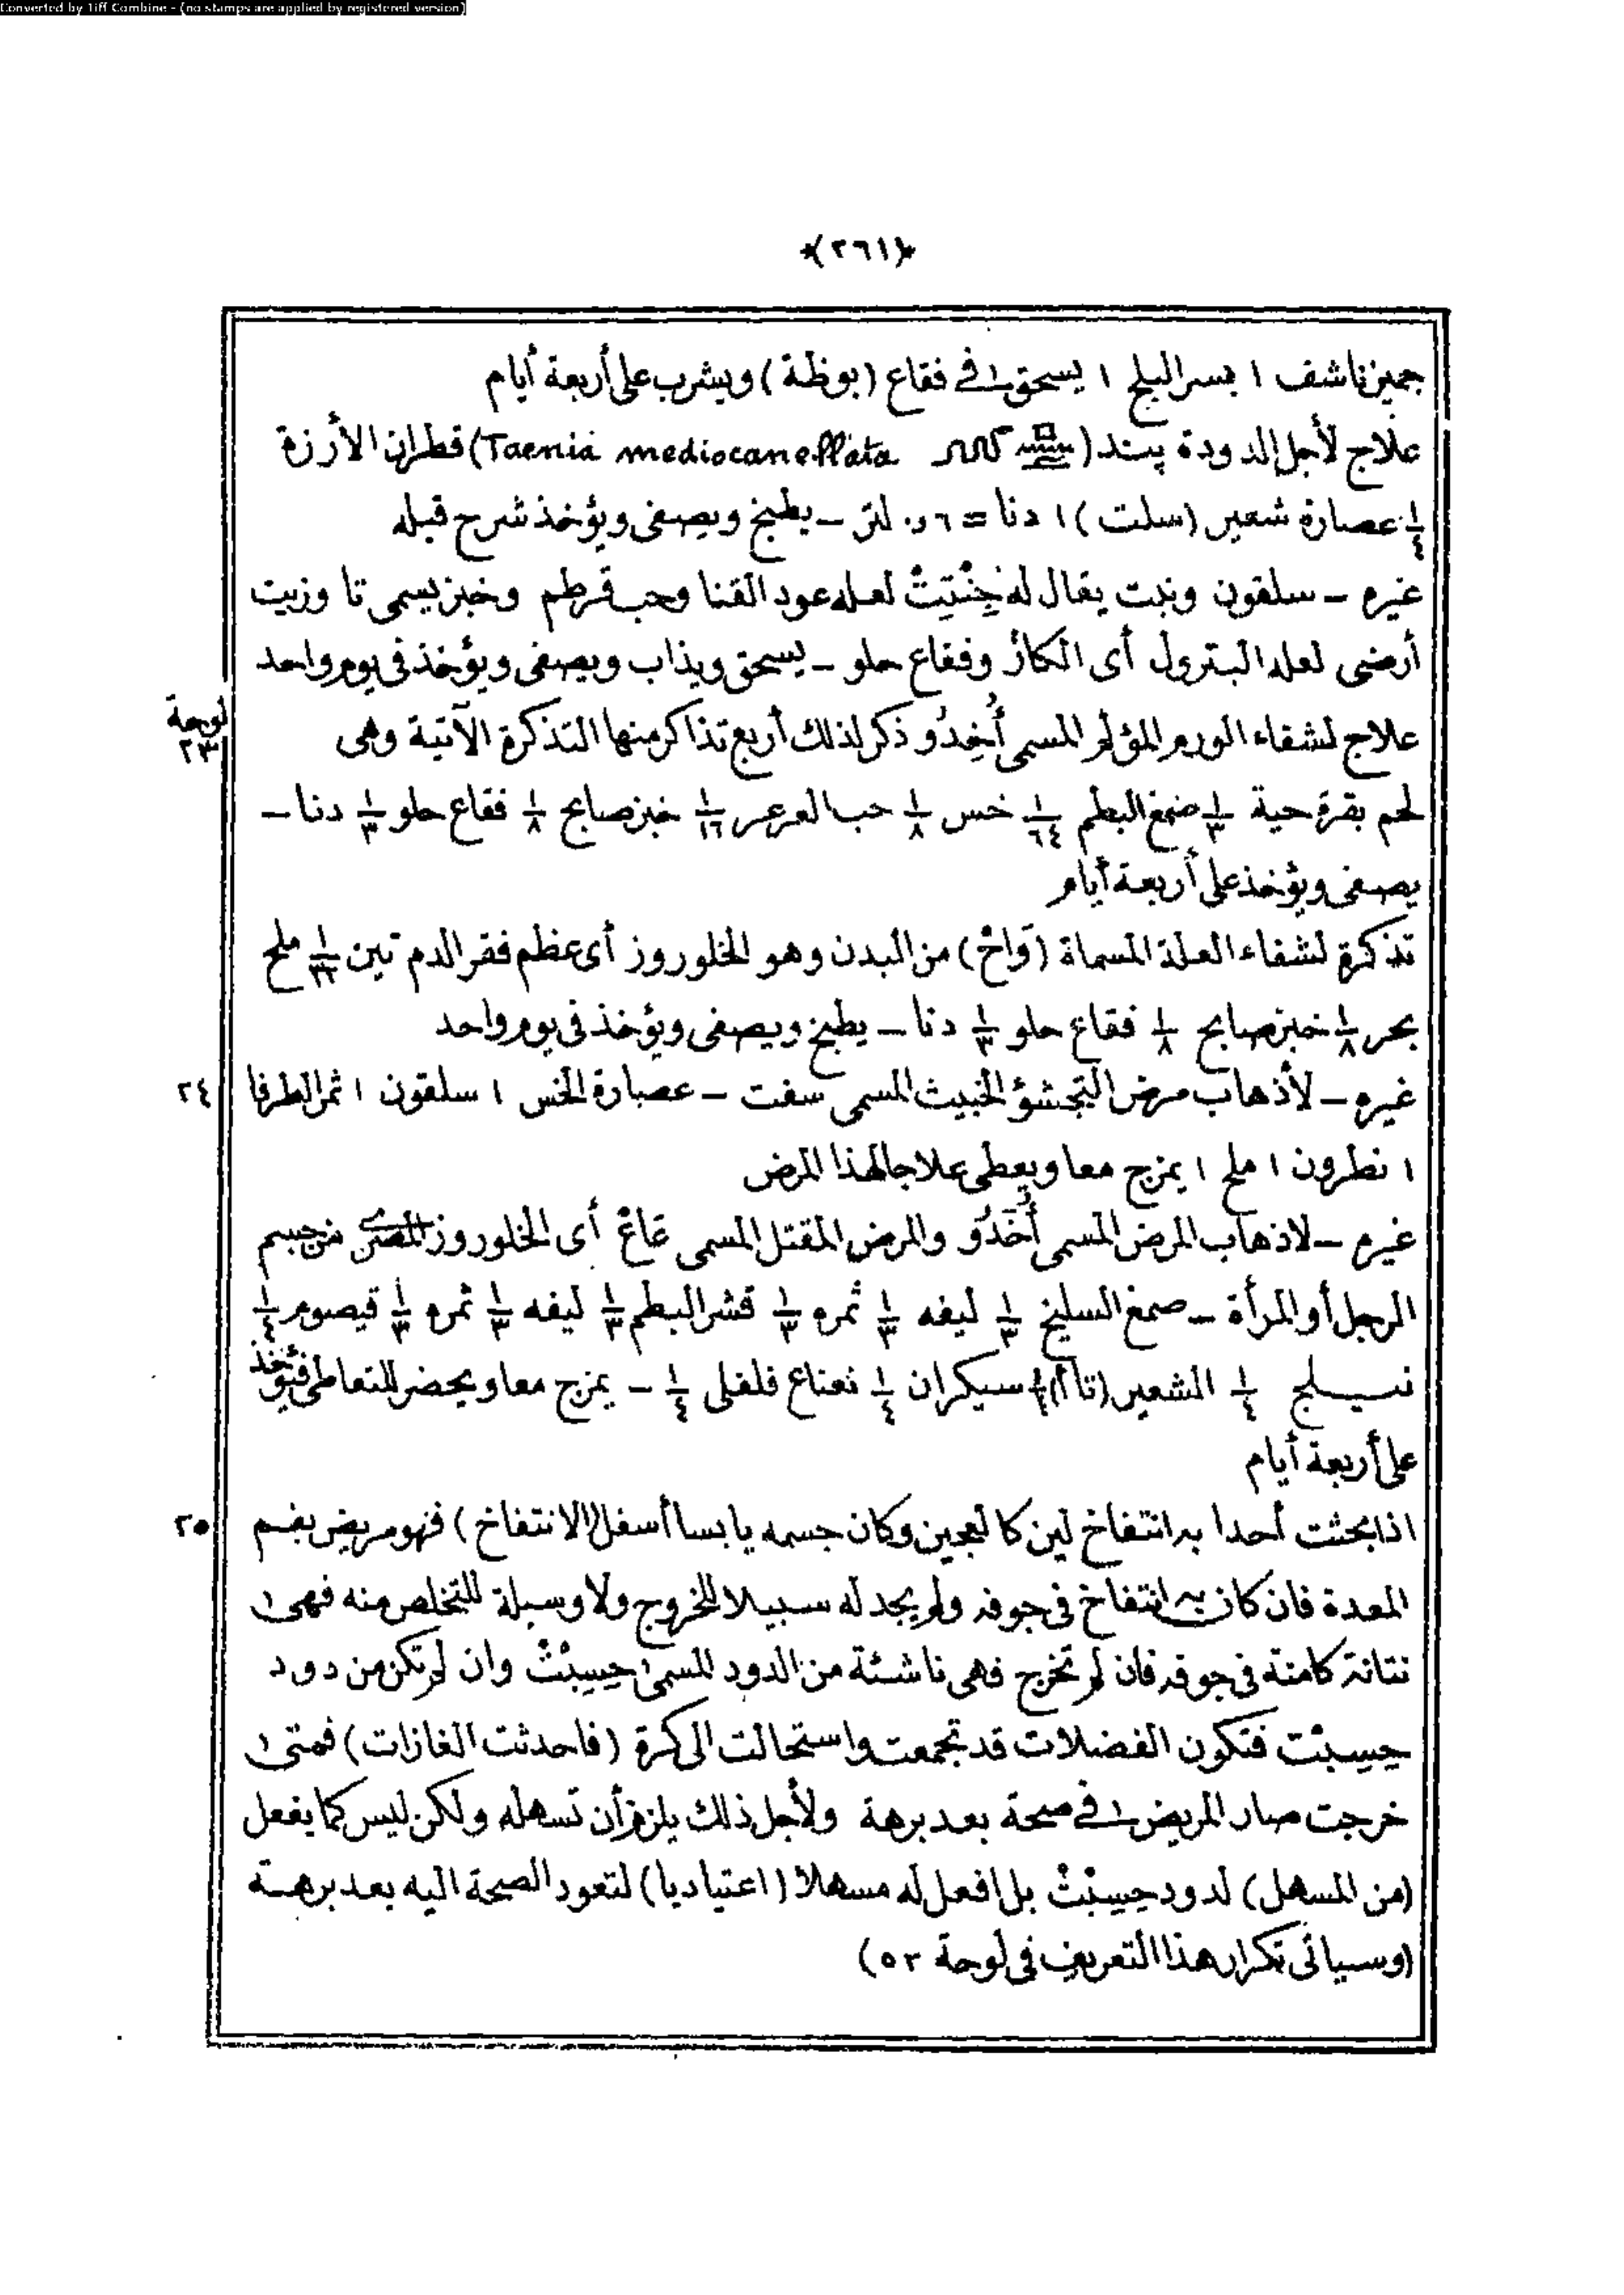 Converted by Tiff Combine - (no stamps are applied by registered version)
﴿٢٦١﴾
جميز ناشف ١ بسر البلح ١ يسحق في فقاع (بوظة) ويشرب على أربعة أيام
علاج لأجل الدودة پند (Taenia mediocanellata) قطران الأرزة
١/٤ عصارة شعير (سلت) ١ دنا = ٠٫٦ لتر – يطبخ ويصفى ويؤخذ شرح قبله
غيره – سلقون ونبت يقال له جِنْتِتْ لعله عود القنا وحب قرطم وخبز يسمى تا وزيت
أرضى لعله البترول أى الكاز وفقاع حلو – يسحق ويذاب ويصفى ويؤخذ فى يوم واحد
لوحة ٢٣
علاج لشفاء الورم المؤلم المسمى أُخِدُو ذكر لذلك أربع تذاكر منها التذكرة الآتية وهى
لحم بقرة حية ١/٣ صمغ البطم ١/٦٤ خس ١/٨ حب العرعر ١/١٦ خبز صابح ١/٨ فقاع حلو ١/٣ دنا –
يصفى ويؤخذ على أربعة أيام
تذكرة لشفاء العلة المسماة (وَاخْ) من البدن وهو الخلوروز أى عظم فقر الدم تين ١/٣٢ ملح
بحر ١/٨ خبز صابح ١/٨ فقاع حلو ١/٣ دنا – يطبخ ويصفى ويؤخذ فى يوم واحد
٢٤
غيره – لأذهاب مرض التجشؤ الخبيث المسمى سفت – عصارة الخس ١ سلقون ١ ثمر الطرفا
١ نطرون ١ ملح ١ يمزج معا ويعطى علاجا لهذا المرض
غيره – لاذهاب المرض المسمى أُخَدُو والمرض المقتل المسمى عَاعْ أى الخلوروز المصرى من جسم
الرجل أو المرأة – صمغ السليخ ١/٣ ليفه ١/٣ ثمره ١/٣ قشر البطم ١/٣ ليفه ١/٣ ثمره ١/٣ قيصوم ١/٤
١/٤ الشعير (تاأا) سيكران ١/٤ نعناع فلفلى ١/٤ – يمزج معا ويحضر للتعاطى فيؤخذ
على أربعة أيام
٢٥
اذا بحثت أحدا به انتفاخ لين كالعجين وكان جسمه يابسا أسفل (الانتفاخ) فهو مريض بفم
المعدة فان كان به انتفاخ فى جوفه ولم يجد له سبيلا للخروج ولا وسيلة للتخلص منه فهى
نتانة كامنة فى جوفه فان لم تخرج فهى ناشئة من الدود المسمى حِسِبْتْ وان لم تكن من دود
حِسِبْت فتكون الفضلات قد تجمعت واستحالت الى كرة (فاحدثت الغازات) فمتى
خرجت صار المريض في صحة بعد برهة ولأجل ذلك يلزم أن تسهله ولكن ليس كما يفعل
(من المسهل) لدود حِسِبْتْ بل افعل له مسهلا (اعتياديا) لتعود الصحة اليه بعد برهة
(وسيأتى تكرار هذا التعريف فى لوحة ٥٢)